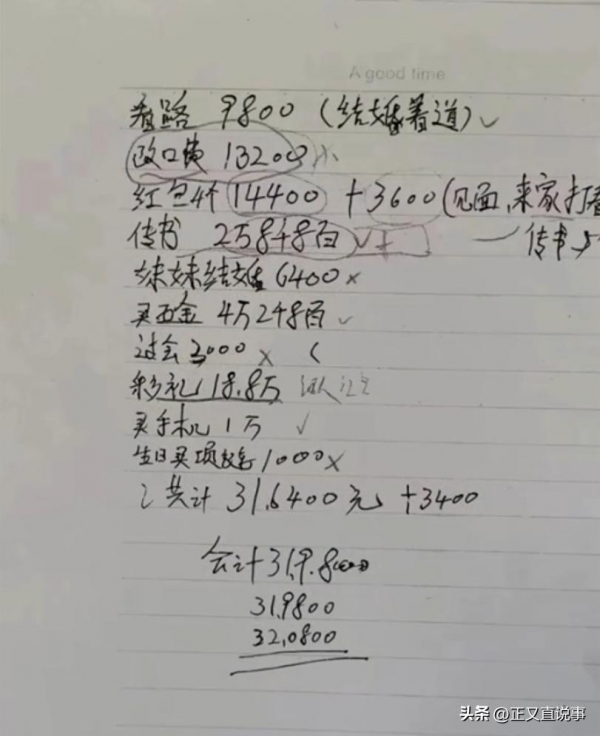 A good time
看路 9800 (结婚着道) ✓
改口费 13200
红包4个 14400 + 3600 (见面,来家打看
传书 25848百 ✓ 传书
妹妹结婚 6400 ×
买五金 4万248百 ✓
过会 3000 ×
彩礼 18.8万
买手机 1万 ✓
生日买项 1000 ×
共计 31.6400元 +3400
会计 31.9.8000
31.9800
32.0800
头条 @正又直说事